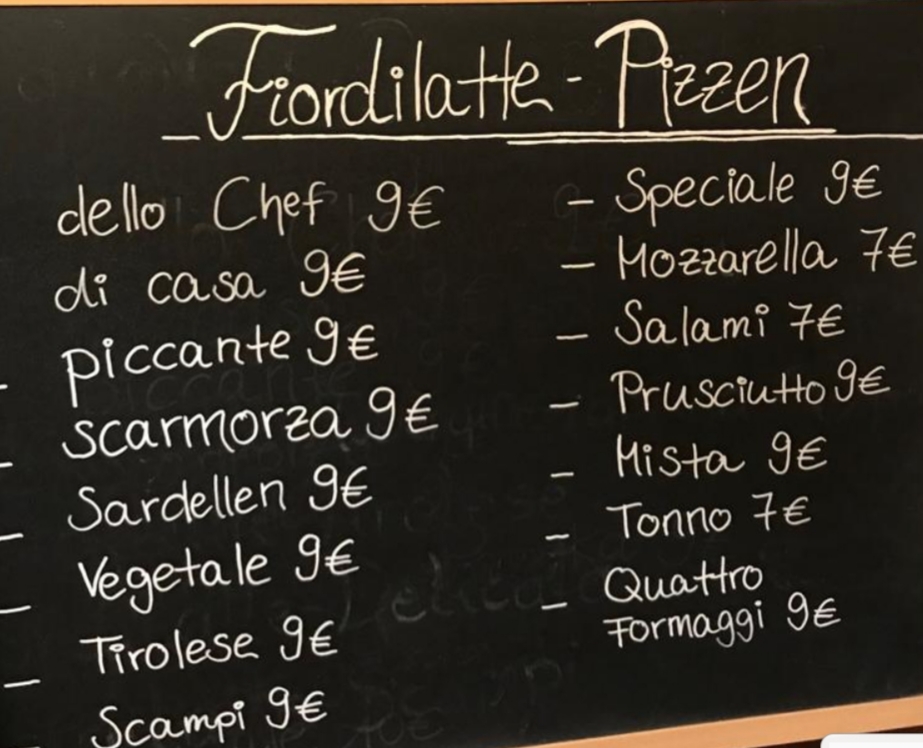 Fiordilatte - Pizzen
dello Chef 9€
di casa 9€
- piccante 9€
- scarmorza 9€
- Sardellen 9€
- Vegetale 9€
- Tirolese 9€
- Scampi 9€
- Speciale 9€
- Mozzarella 7€
- Salami 7€
- Prusciutto 9€
- Mista 9€
- Tonno 7€
- Quattro
Formaggi 9€